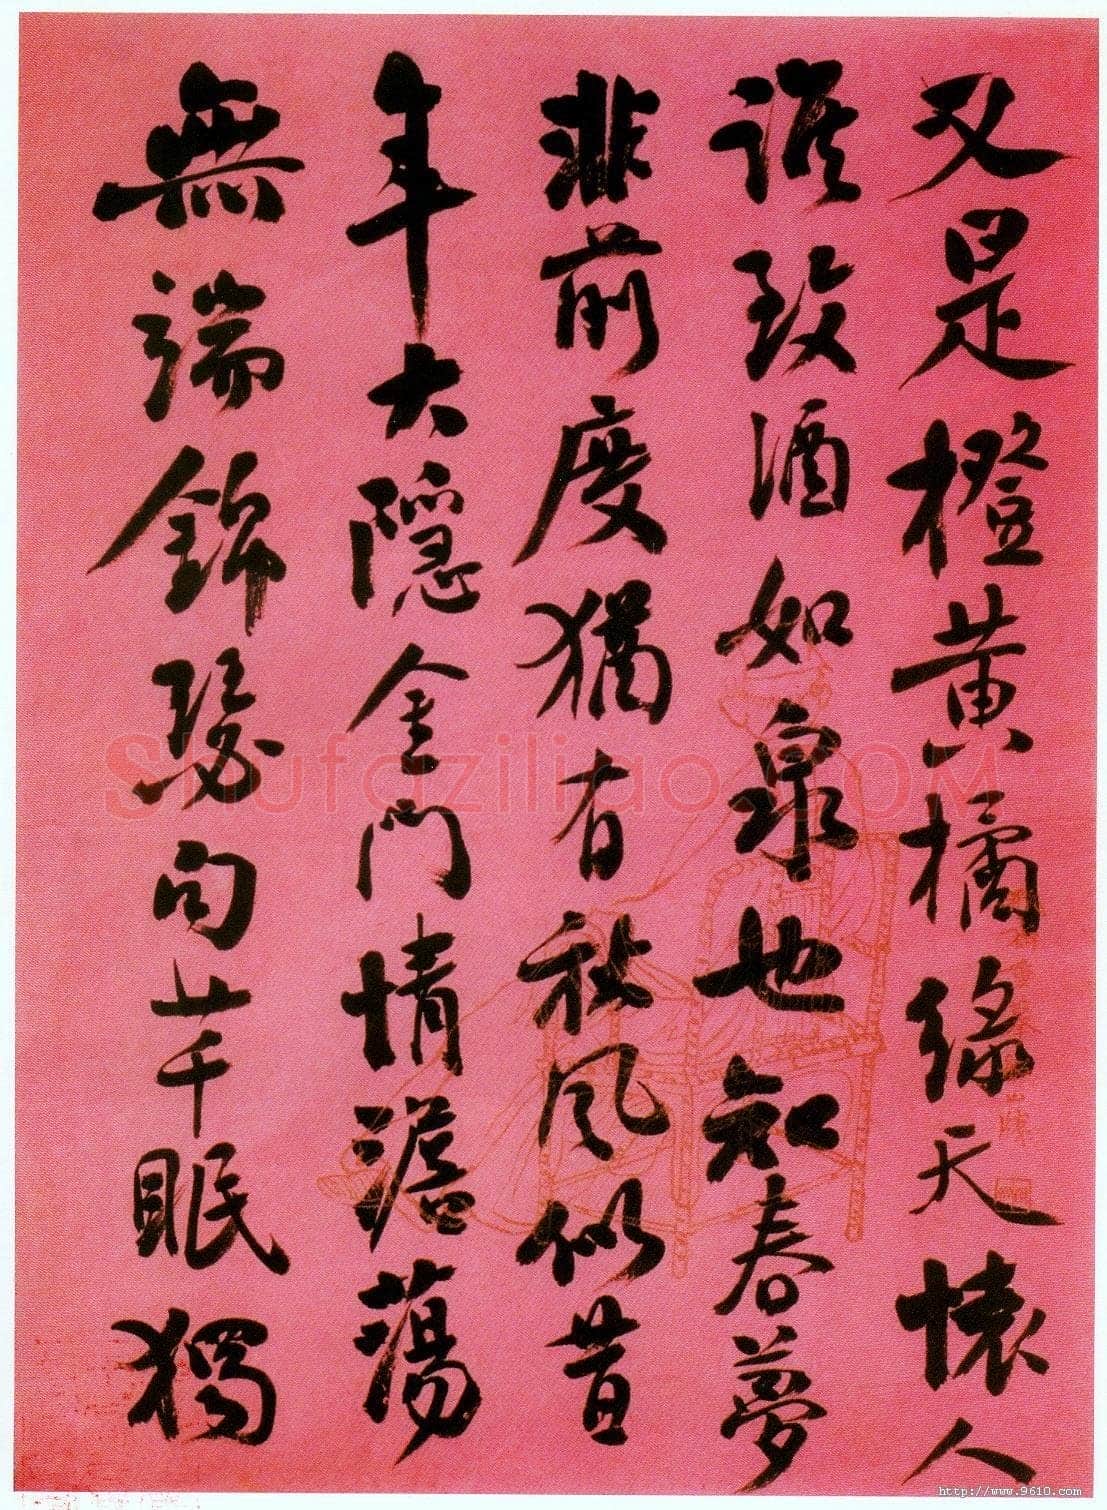 又是橙黄橘緑天懷人
誰致酒如泉也知春夢
非前度猶有秋風似昔
年大隱金門情澹蕩
無端錦瑟句芊眠獨
Shufaziliao.COM
http://www.9610.com